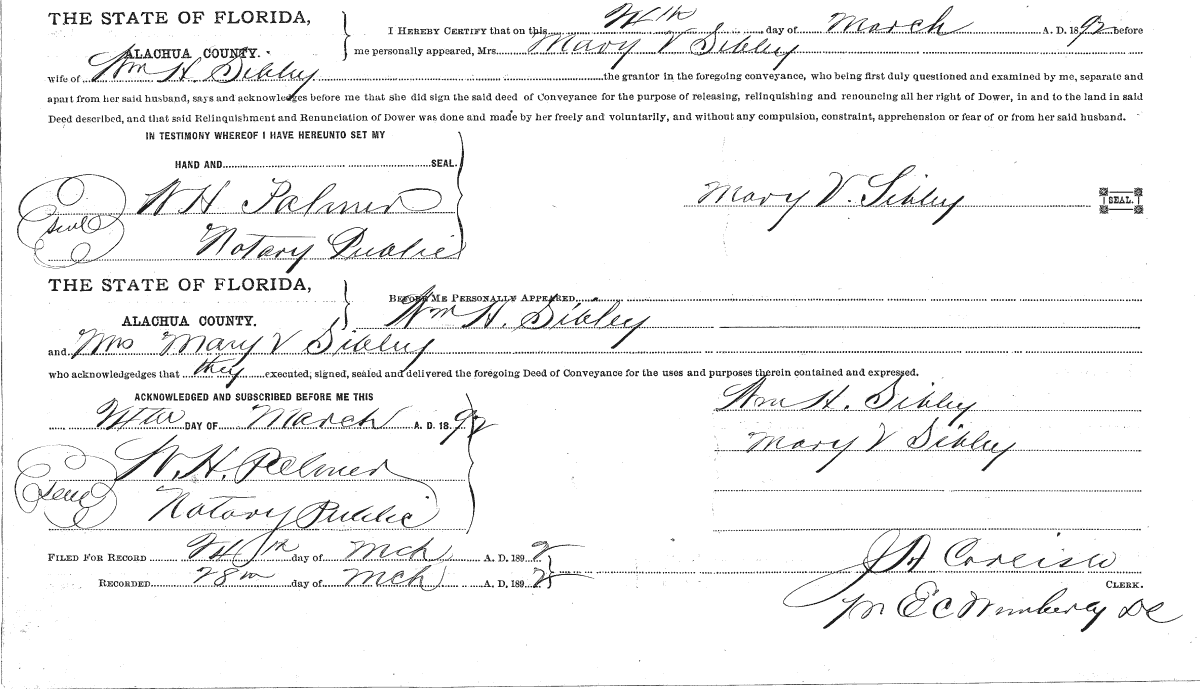 THE STATE OF FLORIDA,
ALACHUA COUNTY.
I HEREBY CERTIFY that on this 24th day of March A. D. 1892 before
me personally appeared, Mrs. Mary V Sibley
wife of Wm H. Sibley the grantor in the foregoing conveyance, who being first duly questioned and examined by me, separate and
apart from her said husband, says and acknowledges before me that she did sign the said deed of Conveyance for the purpose of releasing, relinquishing and renouncing all her right of Dower, in and to the land in said
Deed described, and that said Relinquishment and Renunciation of Dower was done and made by her freely and voluntarily, and without any compulsion, constraint, apprehension or fear of or from her said husband.
IN TESTIMONY WHEREOF I HAVE HEREUNTO SET MY
HAND AND SEAL.
W H Palmer
Seal
Notary Public
Mary V. Sibley
SEAL.
THE STATE OF FLORIDA,
ALACHUA COUNTY.
BEFORE ME PERSONALLY APPEARED
Wm H. Sibley
and Mrs Mary V Sibley
who acknowledgedges that they executed, signed, sealed and delivered the foregoing Deed of Conveyance for the uses and purposes therein contained and expressed.
ACKNOWLEDGED AND SUBSCRIBED BEFORE ME THIS
24th DAY OF March A. D. 18.92
W. H. Palmer
Seal
Notary Public
Wm H. Sibley
Mary V Sibley
FILED FOR RECORD 24th day of Mch A. D. 1892
RECORDED 28th day of Mch A. D. 1892
J A
CLERK.
E C Wimberly DC